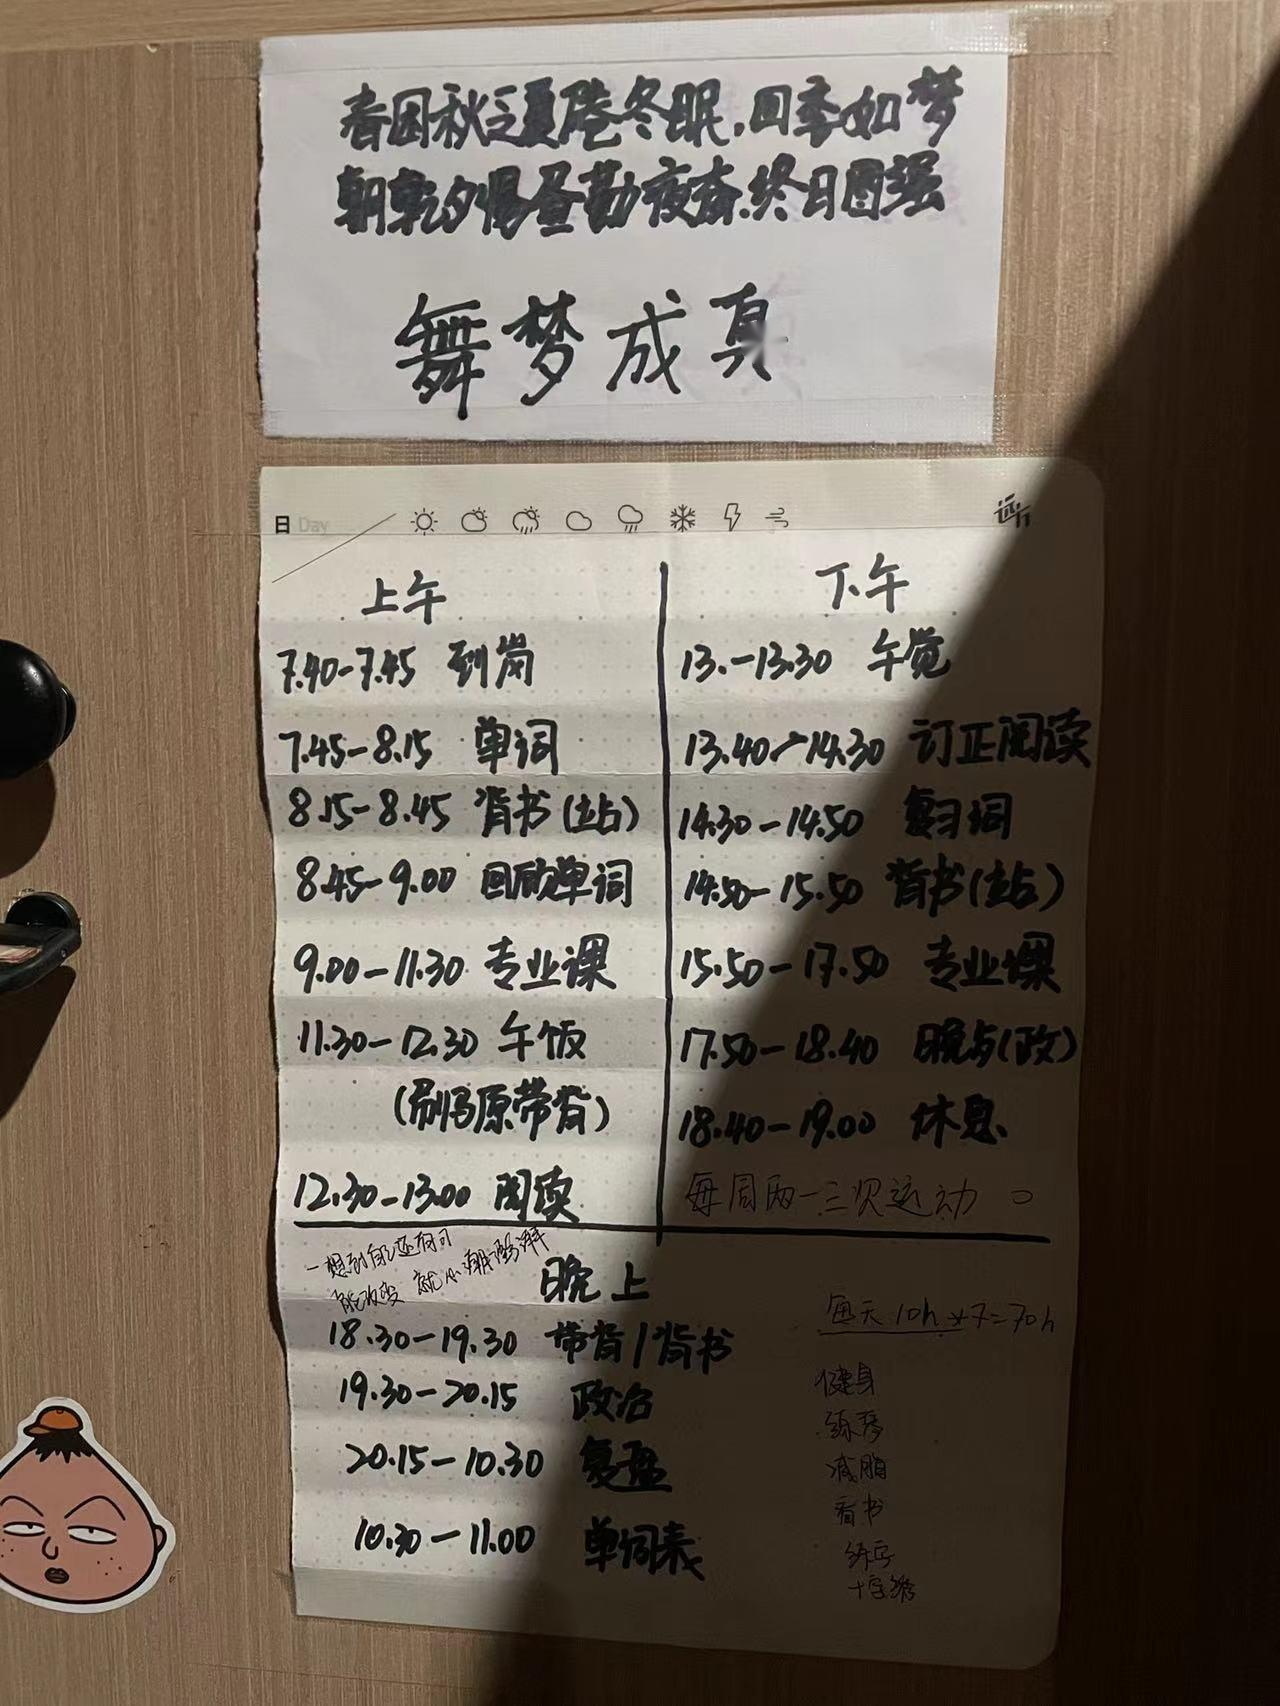 春困秋乏夏倦冬眠,四季如梦
朝乾夕惕昼勤夜奋.终日图强
舞梦成真
日 Day
远行
上午
7.40-7.45 到岗
7.45-8.15 单词
8.15-8.45 背书(站)
8.45-9.00 回顾单词
9.00-11.30 专业课
11.30-12.30 午饭
(刷马原带背)
12.30-13.00 阅读
下午
13.-13.30 午觉
13.40-14.30 订正阅读
14.30-14.50 复习词
14.50-15.50 背书(站)
15.50-17.50 专业课
17.50-18.40 晚点(政)
18.40-19.00 休息
每周两-三次运动
一想到自己还有可
能改变 就心潮澎湃
晚上
18.30-19.30 带背/背书
19.30-20.15 政治
20.15-10.30 复盘
10.30-11.00 单词表
每天10h*7=70h
健身
练琴
减脂
看书
练字
十字绣